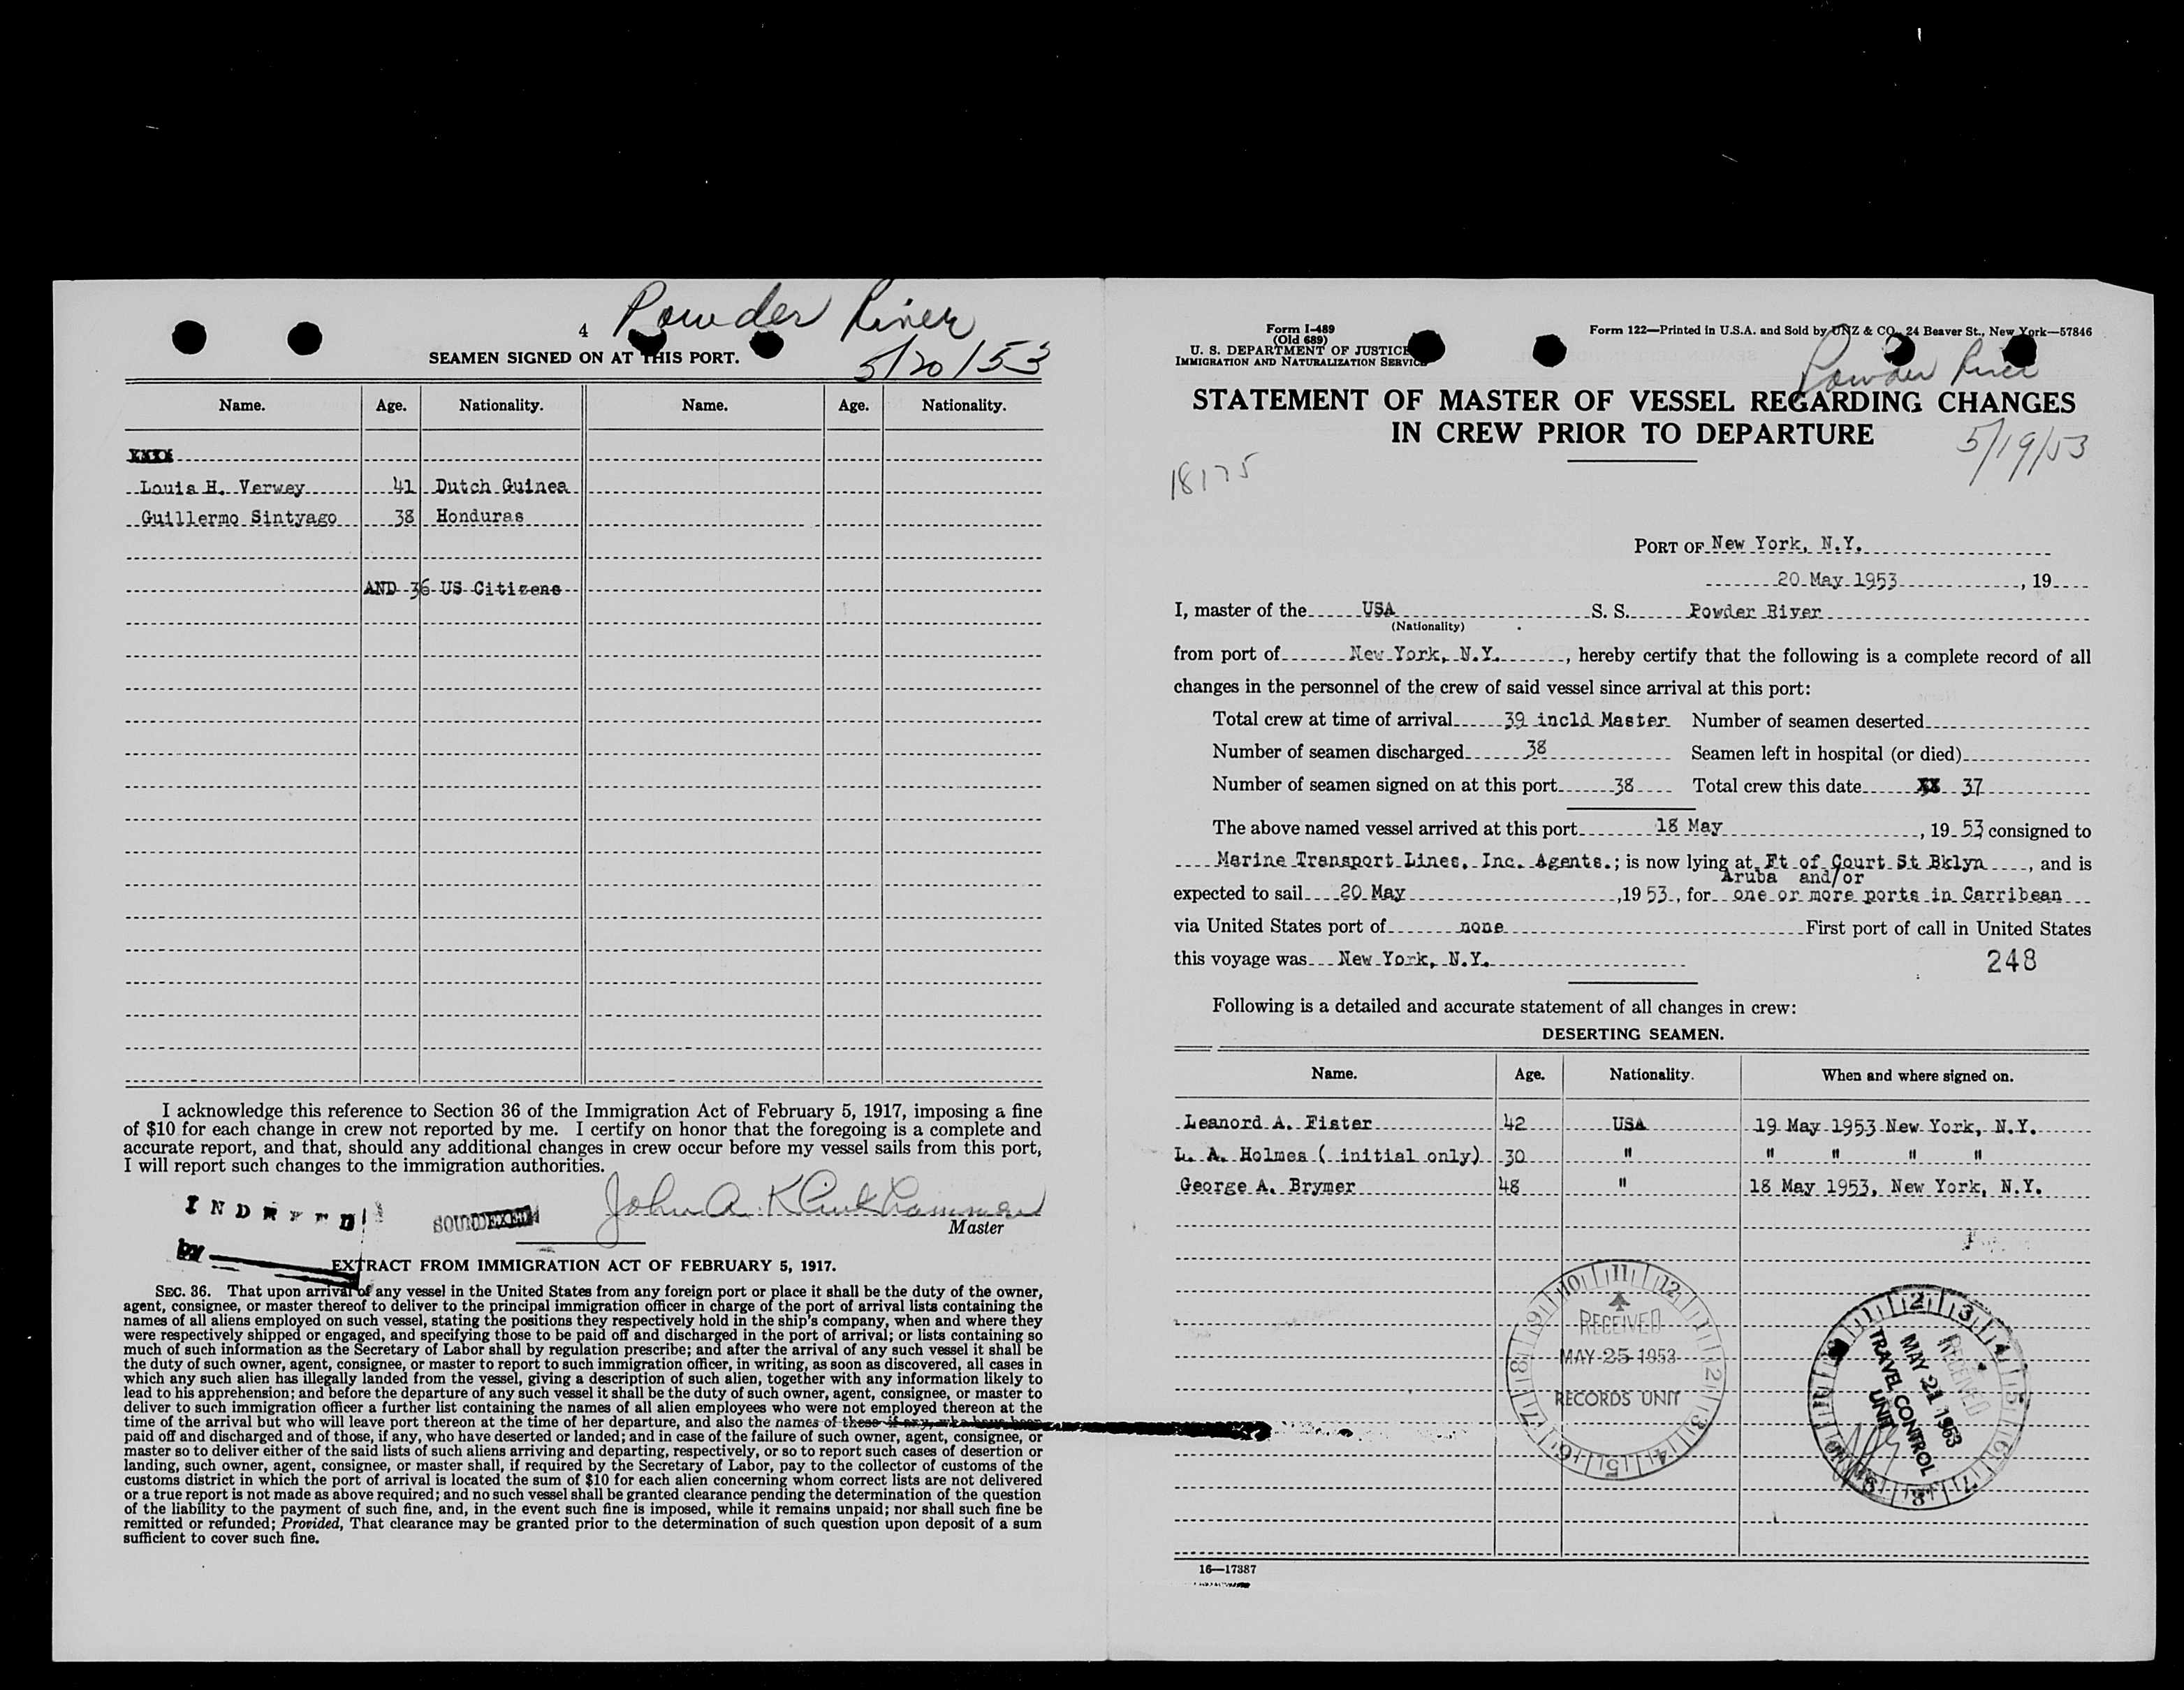 Powder River
4
SEAMEN SIGNED ON AT THIS PORT.
5/20/53
Name. Age. Nationality. Name. Age. Nationality.
Louis H. Verwey 41 Dutch Guinea
Guillermo Sintyago 38 Honduras
AND 36 US Citizens
I acknowledge this reference to Section 36 of the Immigration Act of February 5, 1917, imposing a fine
of $10 for each change in crew not reported by me. I certify on honor that the foregoing is a complete and
accurate report, and that, should any additional changes in crew occur before my vessel sails from this port,
I will report such changes to the immigration authorities.
INDEXED
SOUNDEXED
John A.
Master
by
EXTRACT FROM IMMIGRATION ACT OF FEBRUARY 5, 1917.
SEC. 36. That upon arrival of any vessel in the United States from any foreign port or place it shall be the duty of the owner,
agent, consignee, or master thereof to deliver to the principal immigration officer in charge of the port of arrival lists containing the
names of all aliens employed on such vessel, stating the positions they respectively hold in the ship's company, when and where they
were respectively shipped or engaged, and specifying those to be paid off and discharged in the port of arrival; or lists containing so
much of such information as the Secretary of Labor shall by regulation prescribe; and after the arrival of any such vessel it shall be
the duty of such owner, agent, consignee, or master to report to such immigration officer, in writing, as soon as discovered, all cases in
which any such alien has illegally landed from the vessel, giving a description of such alien, together with any information likely to
lead to his apprehension; and before the departure of any such vessel it shall be the duty of such owner, agent, consignee, or master to
deliver to such immigration officer a further list containing the names of all alien employees who were not employed thereon at the
time of the arrival but who will leave port thereon at the time of her departure, and also the names of those if any, who have been
paid off and discharged and of those, if any, who have deserted or landed; and in case of the failure of such owner, agent, consignee, or
master so to deliver either of the said lists of such aliens arriving and departing, respectively, or so to report such cases of desertion or
landing, such owner, agent, consignee, or master shall, if required by the Secretary of Labor, pay to the collector of customs of the
customs district in which the port of arrival is located the sum of $10 for each alien concerning whom correct lists are not delivered
or a true report is not made as above required; and no such vessel shall be granted clearance pending the determination of the question
of the liability to the payment of such fine, and, in the event such fine is imposed, while it remains unpaid; nor shall such fine be
remitted or refunded; Provided, That clearance may be granted prior to the determination of such question upon deposit of a sum
sufficient to cover such fine.
Form I-489
(Old 689)
U. S. DEPARTMENT OF JUSTICE
IMMIGRATION AND NATURALIZATION SERVICE
Form 122—Printed in U.S.A. and Sold by UNZ & CO., 24 Beaver St., New York—57846
Powder River
STATEMENT OF MASTER OF VESSEL REGARDING CHANGES
IN CREW PRIOR TO DEPARTURE
5/19/53
18175
PORT OF New York, N.Y.
20 May 1953, 19
I, master of the USA S. S. Powder River
(Nationality)
from port of New York, N.Y., hereby certify that the following is a complete record of all
changes in the personnel of the crew of said vessel since arrival at this port:
Total crew at time of arrival 39 incld Master Number of seamen deserted
Number of seamen discharged 38 Seamen left in hospital (or died)
Number of seamen signed on at this port 38 Total crew this date XX 37
The above named vessel arrived at this port 18 May, 19 53 consigned to
Marine Transport Lines, Inc. Agents.; is now lying at Ft of Court St Bklyn, and is
Aruba and/or
expected to sail 20 May, 19 53, for one or more ports in Carribean
via United States port of none First port of call in United States
this voyage was New York, N.Y.
248
Following is a detailed and accurate statement of all changes in crew:
DESERTING SEAMEN.
Name. Age. Nationality. When and where signed on.
Leanord A. Fister 42 USA 19 May 1953 New York, N.Y.
L. A. Holmes ( initial only) 30 " " " " "
George A. Brymer 48 " 18 May 1953, New York, N.Y.
10 11 12 1 2 3 4 5 6 7 8 9
RECEIVED
MAY 25 1953
RECORDS UNIT
1 2 3 4 5 6 7 8 9 10 11
RECEIVED
MAY 21 1953
TRAVEL CONTROL
UNIT
16—17387